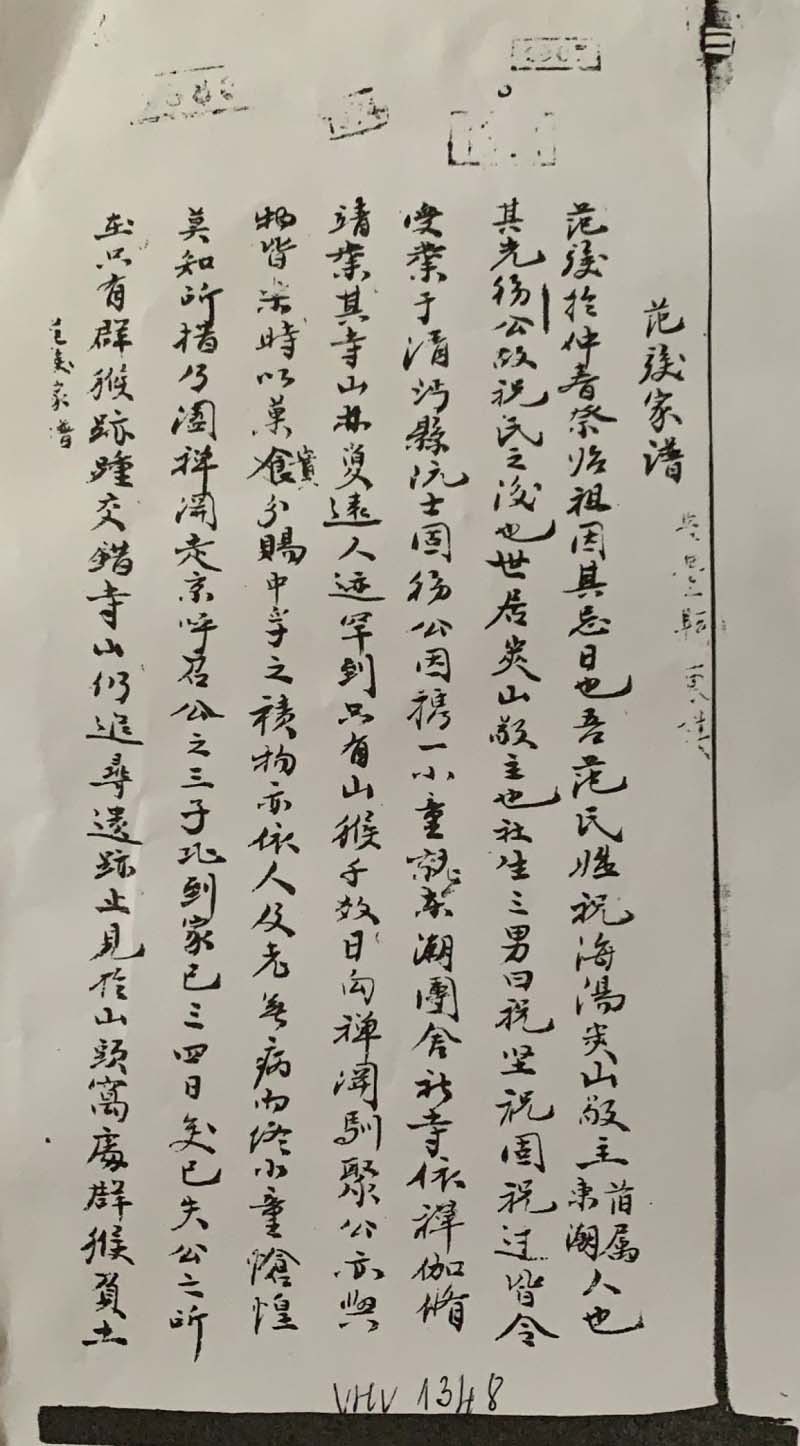 范族家譜
范族於仲春祭始祖因其忌日也吾范氏姓祝海陽炭山敬主首属東潮人也
其先務公故祝氏之後也世居炭山敬主也社生三男曰祝坚祝固祝过皆令
受業于清沔縣阮士固務公因携一小童就東潮團舍社寺依禅伽脩
靖業其寺山林敻遠人迹罕到只有山猴千数日向禅関馴聚公亦與
物皆楽時以菓實飡分賜中孚之積物亦依人及老無病而終小童愴惶
莫知所措乃闔禅関走京呼召公之三子比到家已三四日矣已失公之所
在只有群猴跡踵交錯寺山仍追尋遺跡止見於山頭窩處群猴負土
范族家譜
VHV 1348